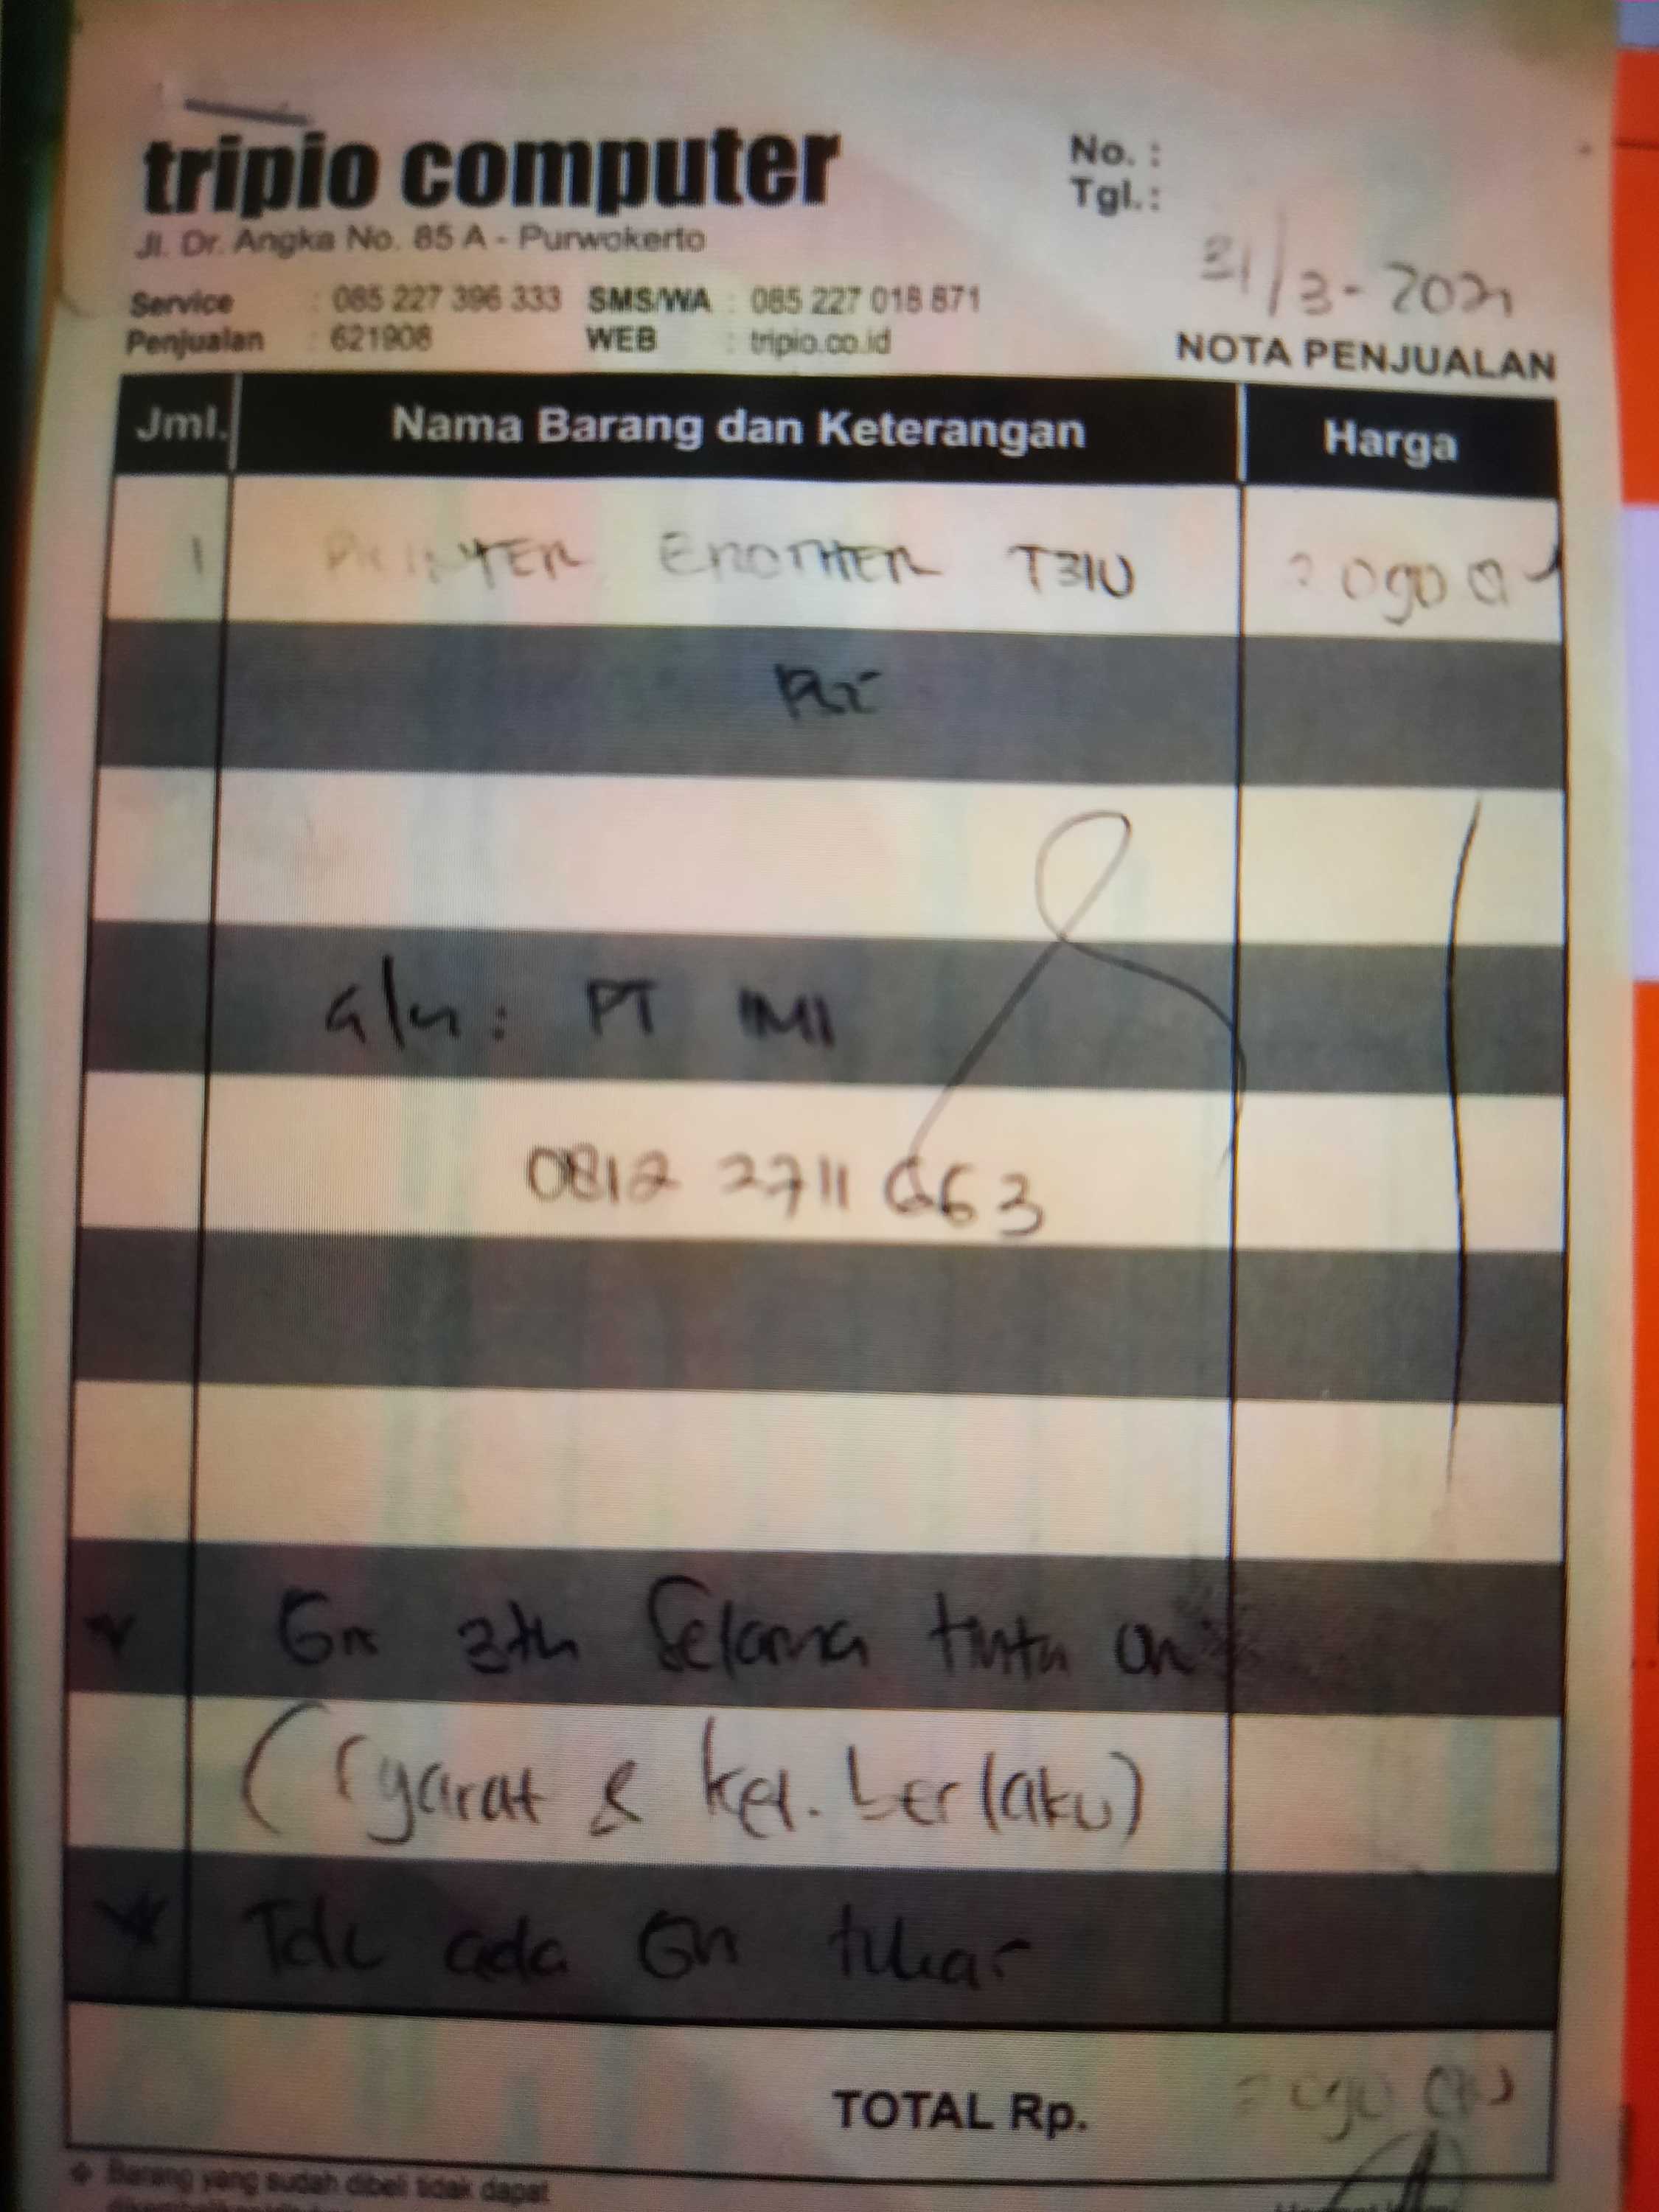 tripio computer
Jl. Dr. Angka No. 85 A - Purwokerto
No. :
Tgl. :
31/3-2021
Service : 085 227 396 333 SMS/WA : 085 227 018 871
Penjualan : 621908 WEB : tripio.co.id
NOTA PENJUALAN
Jml. Nama Barang dan Keterangan Harga
1 PRINTER BROTHER T310
a/n : PT IMI
0812 2711 663
Gn 2th Selama tinta ori
(syarat & ket. berlaku)
Tdk ada Gn tukar
TOTAL Rp.
Barang yang sudah dibeli tidak dapat